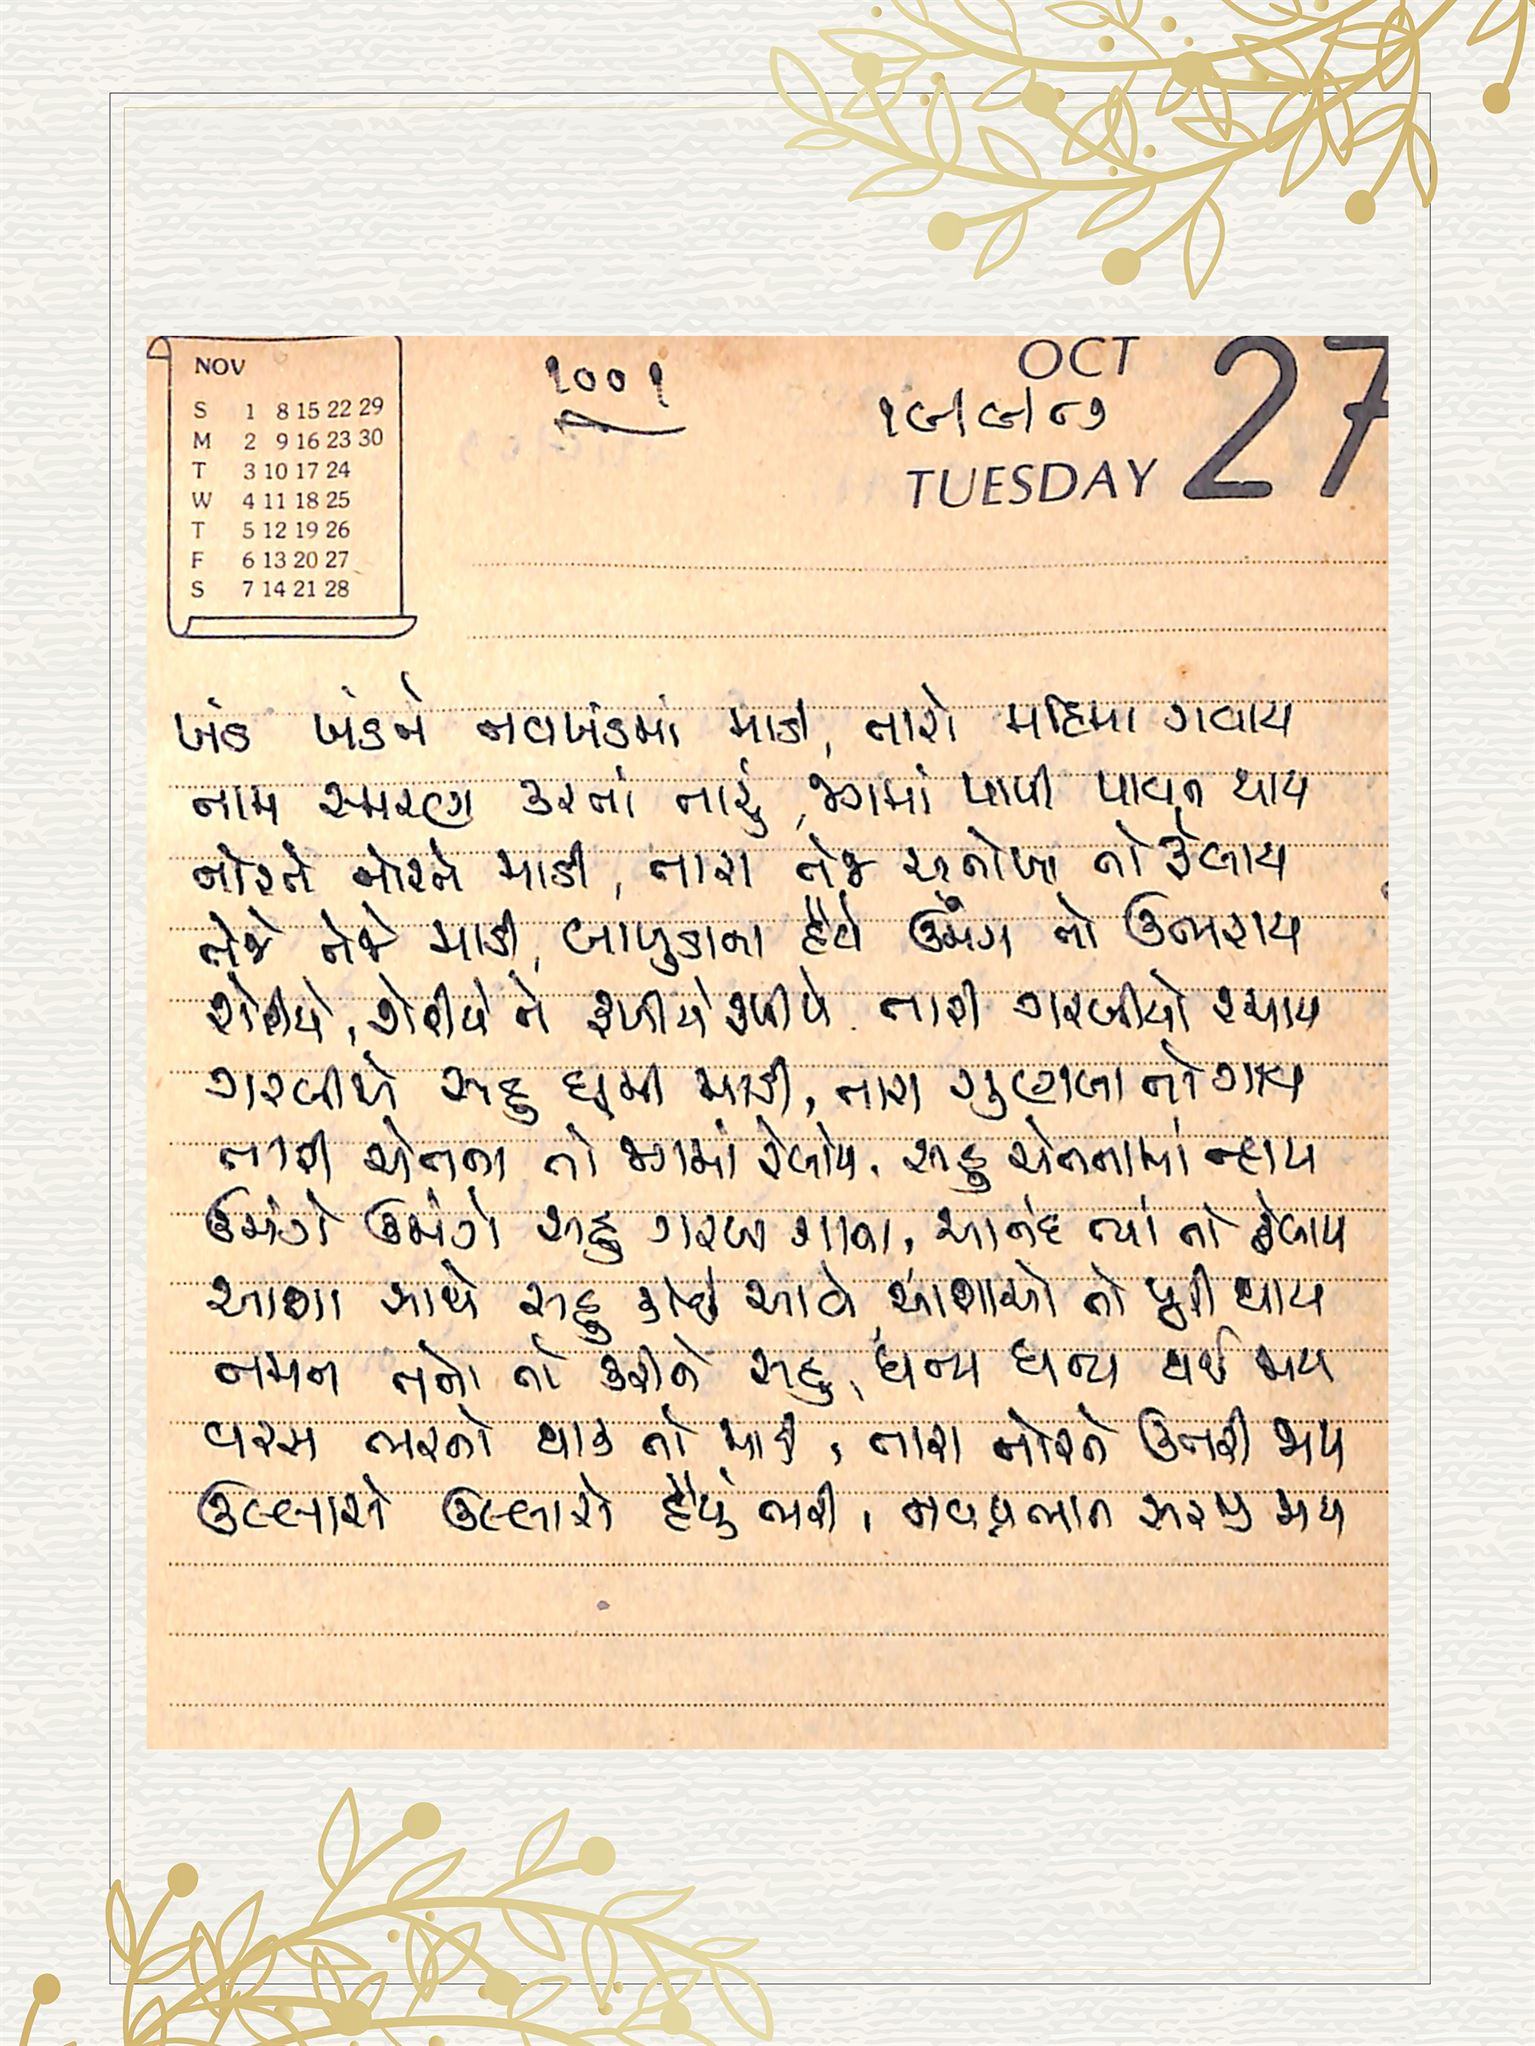 NOV
S 1 8 15 22 29
M 2 9 16 23 30
T 3 10 17 24
W 4 11 18 25
T 5 12 19 26
F 6 13 20 27
S 7 14 21 28
૧૦૦૧
OCT 27
TUESDAY
ખંડ ખંડને નવખંડમાં માડી, તારો મહિમા ગવાય
નામ સ્મરણ કરતાં તારું, જગમાં પાપી પાવન થાય
નોરતે નોરતે માડી, તારા તેજ અનોખા તો ફેલાય
તેજે તેજે માડી, બાળુડાના હૈયે ઉમંગ તો ઉભરાય
શેરીયે, શેરીયે ને ફળીયે ફળીયે તારી ગરબીયો રચાય
ગરબીયે સહુ ઘૂમી માડી, તારા ગુણલા તો ગાય
તારી ચેતના તો જગમાં ફેલાય, સહુ ચેતનામાં ન્હાય
ઉમંગે ઉમંગે સહુ ગરબા ગાતા, આનંદ ત્યાં તો ફેલાય
આશા સાથે સહુ કોઈ આવે, આશાઓ તો પૂરી થાય
નમન તને તો કરીને સહુ, ધન્ય ધન્ય થઈ જાય
વરસ ભરનો થાક તો માડી, તારા નોરતે ઉતરી જાય
ઉલ્લાસે ઉલ્લાસે હૈયું ભરી, નવપ્રભાત સરજી જાય